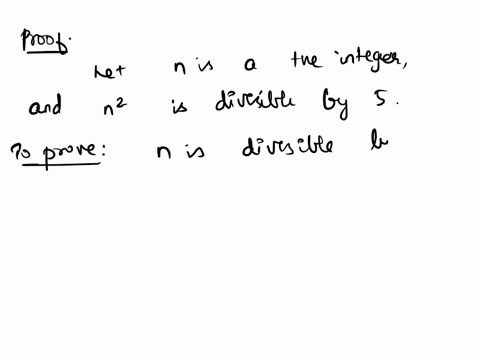 Proof.
Let n is a +ve integer,
and n² is divesible by 5.
To prove: n is divesible b